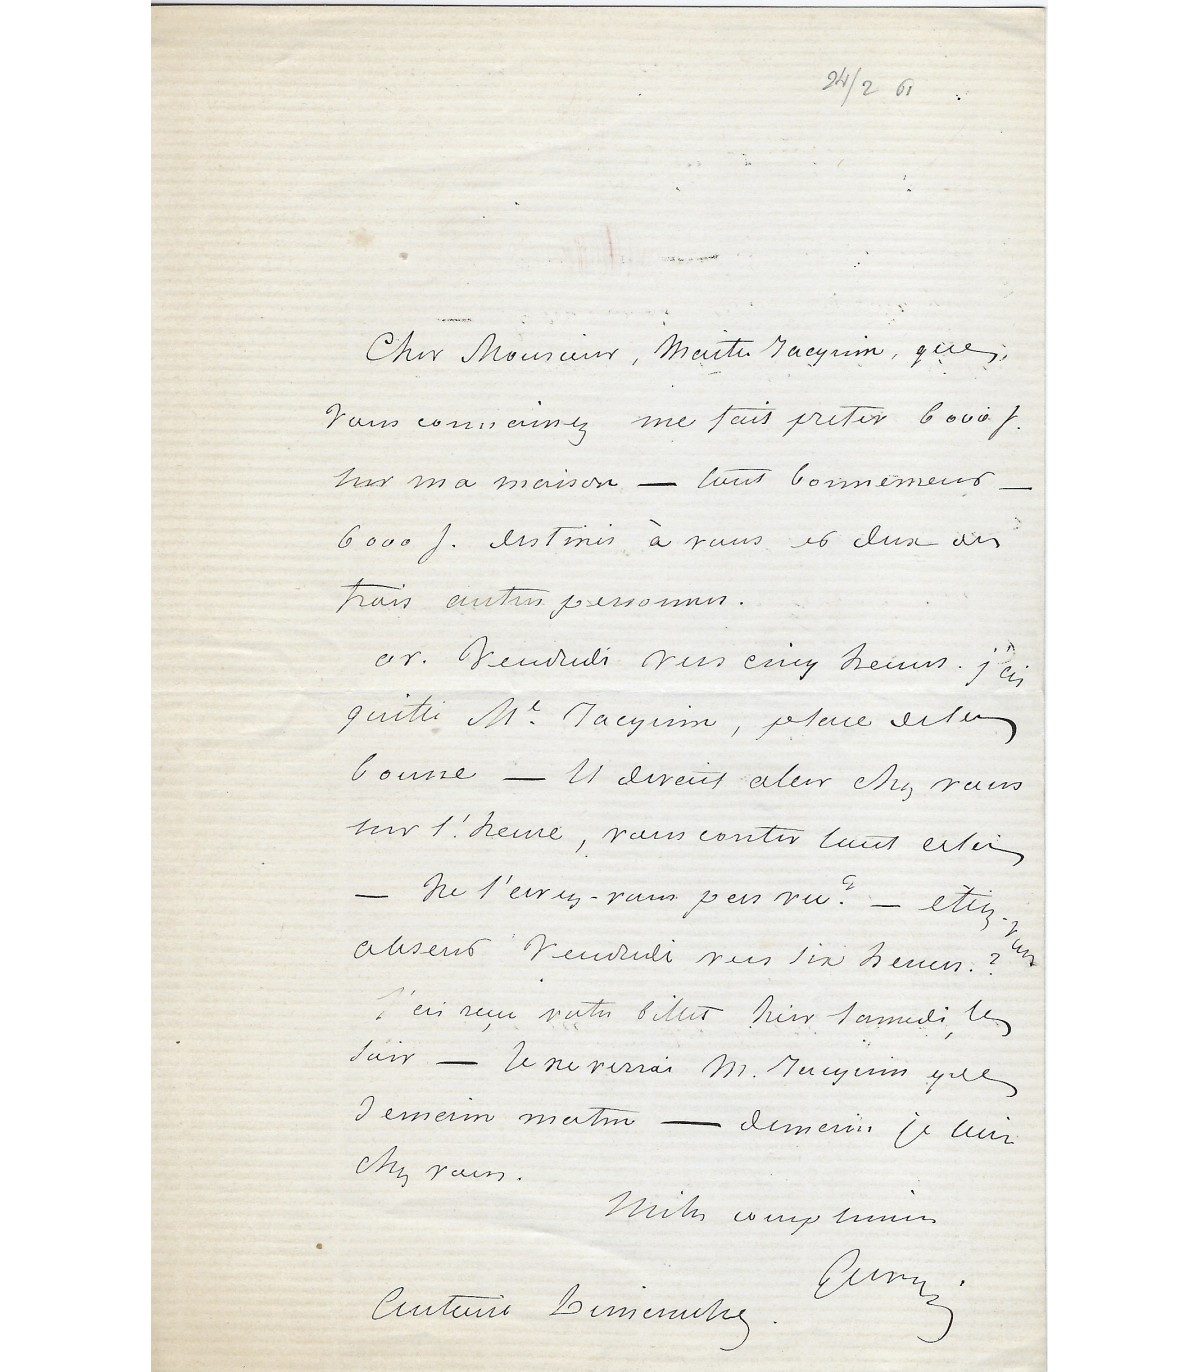 24/2 61
Cher Monsieur, Maitre Jacquin, que
vous connaissez me fait preter 6000 f.
sur ma maison — tout bonnement —
6000 f. destinés à vous et deux ou
trois autres personnes.
or. Vendredi vers cinq heures. j'ai
quitté Me. Jacquin, place de la
bourse — Il devait aller chez vous
sur l'heure, vous conter tout cela
— Ne l'avez-vous pas vu? — étiez-vous
absent Vendredi vers six heures.?
J'ai reçu votre billet hier Samedi, le
soir — Je ne verrai M. Jacquin que
demain matin — demain je suis
chez vous.
Mille complimens
Gavarni
Auteuil Dimanche.